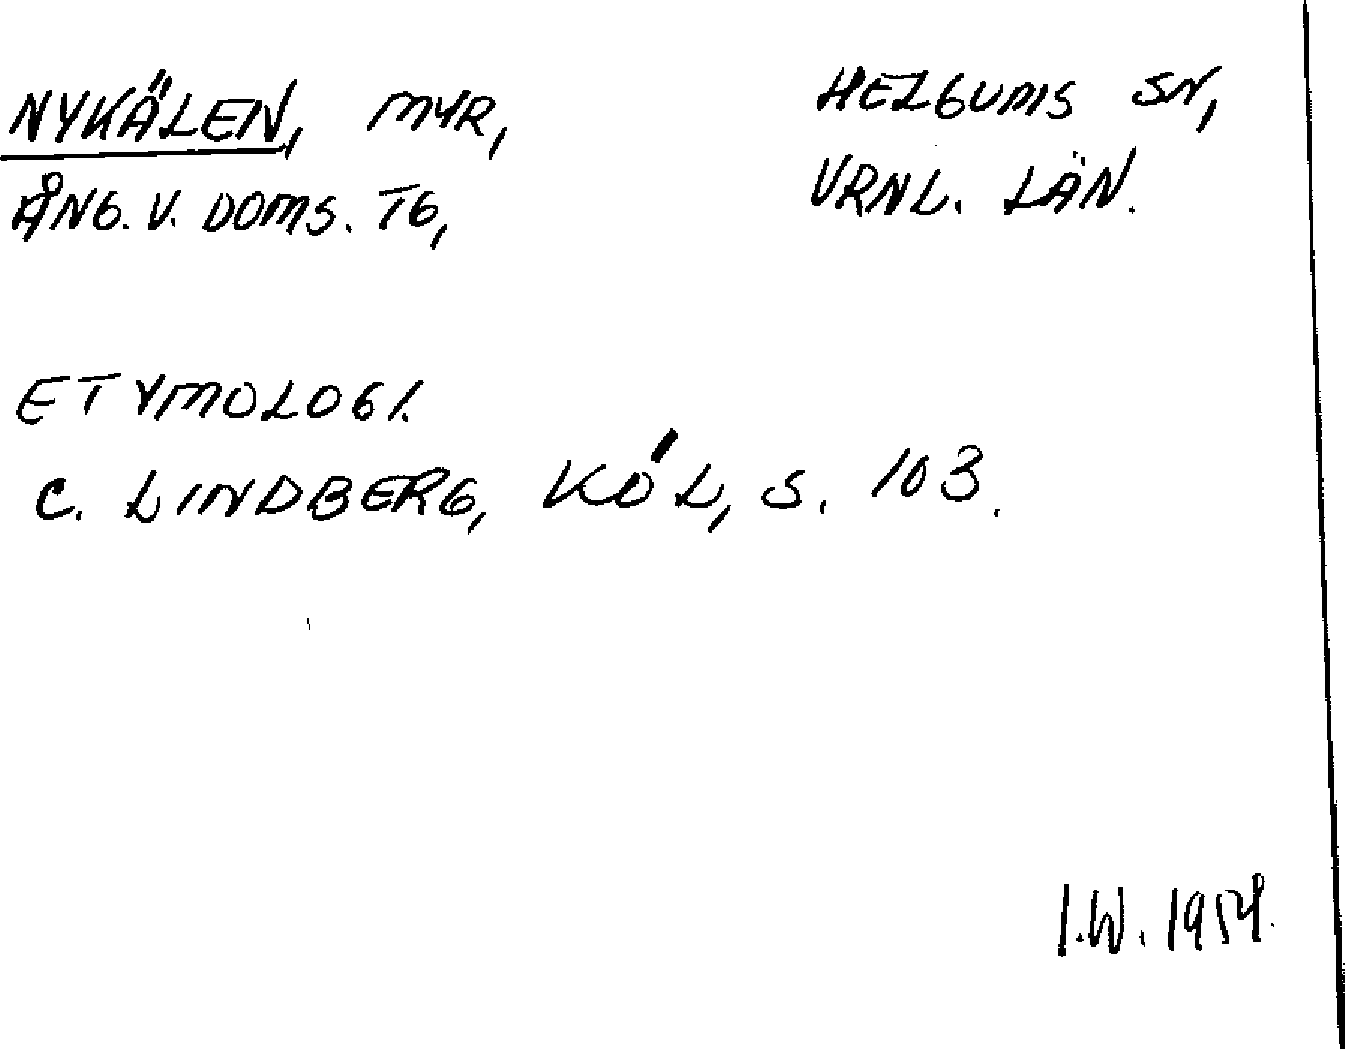 NYKÄLEN, MYR, HELGUMS SN,
ÅNG. V. DOMS. TG, VRNL. LÄN.
ETYMOLOGI.
C. LINDBERG, KÖL, S. 103.
I.W. 1954.